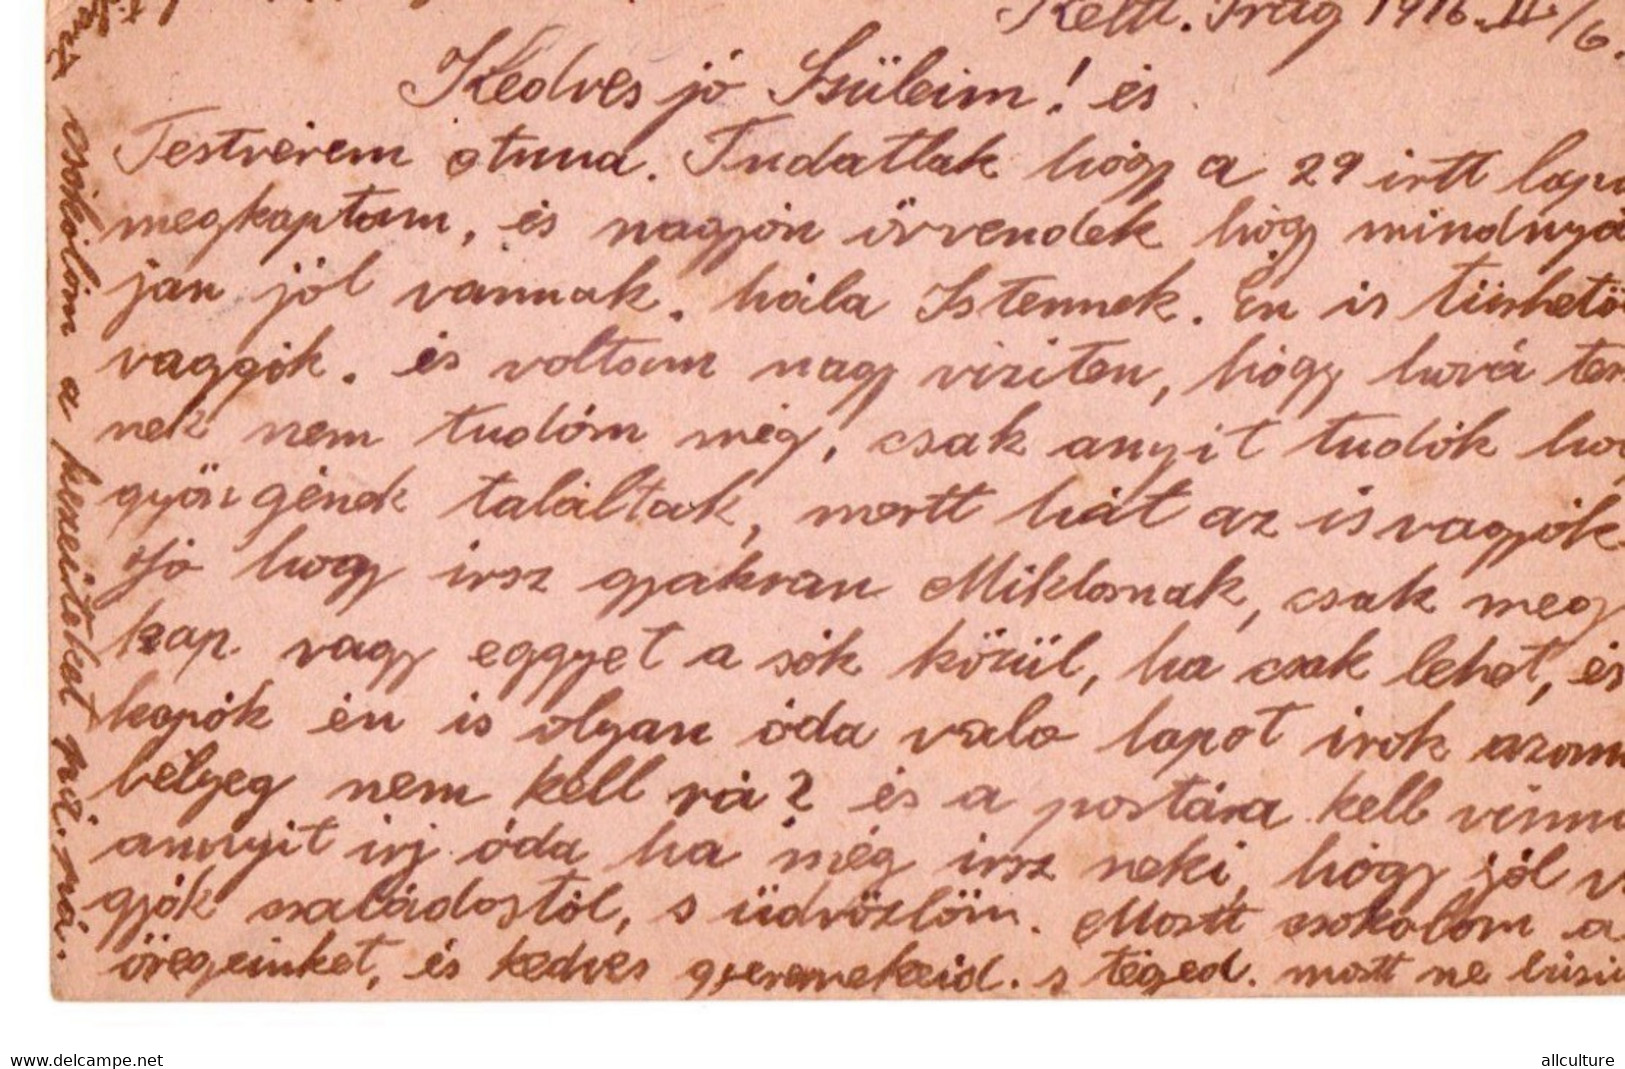 Kelt. Prág 1916. II/6.
Kedves jó Szüleim! és
Testvérem Anna. Tudatlak hógy a 29 irtt lapo
megkaptam, és nagyón örvendek hógy mindnyá
jan jól vannak, hála Istennek. Én is tűrhető
vaggók. és voltam nagy viziten, hógy hová ten
nek nem tudóm még, csak anyit tudók ho
gyön gének találtak, mertt hát az is vagyók
Jó hogy irsz gyakran Miklosnak, csak meg
kap vagy eggyet a sók közül, ha csak lehet, és
kapók én is olyan óda valo lapot irok azom
bélyeg nem kell rá? és a postára kell vinn
annyit irj óda ha még irsz neki, hógy jól v
gjók családostól, s üdvözlöm. Mostt csokolom a
öregeinket, és kedves gyermekeid. s téged. mostt ne
csókolóm a kezeiteket pá. pá.
www.delcampe.net
allculture